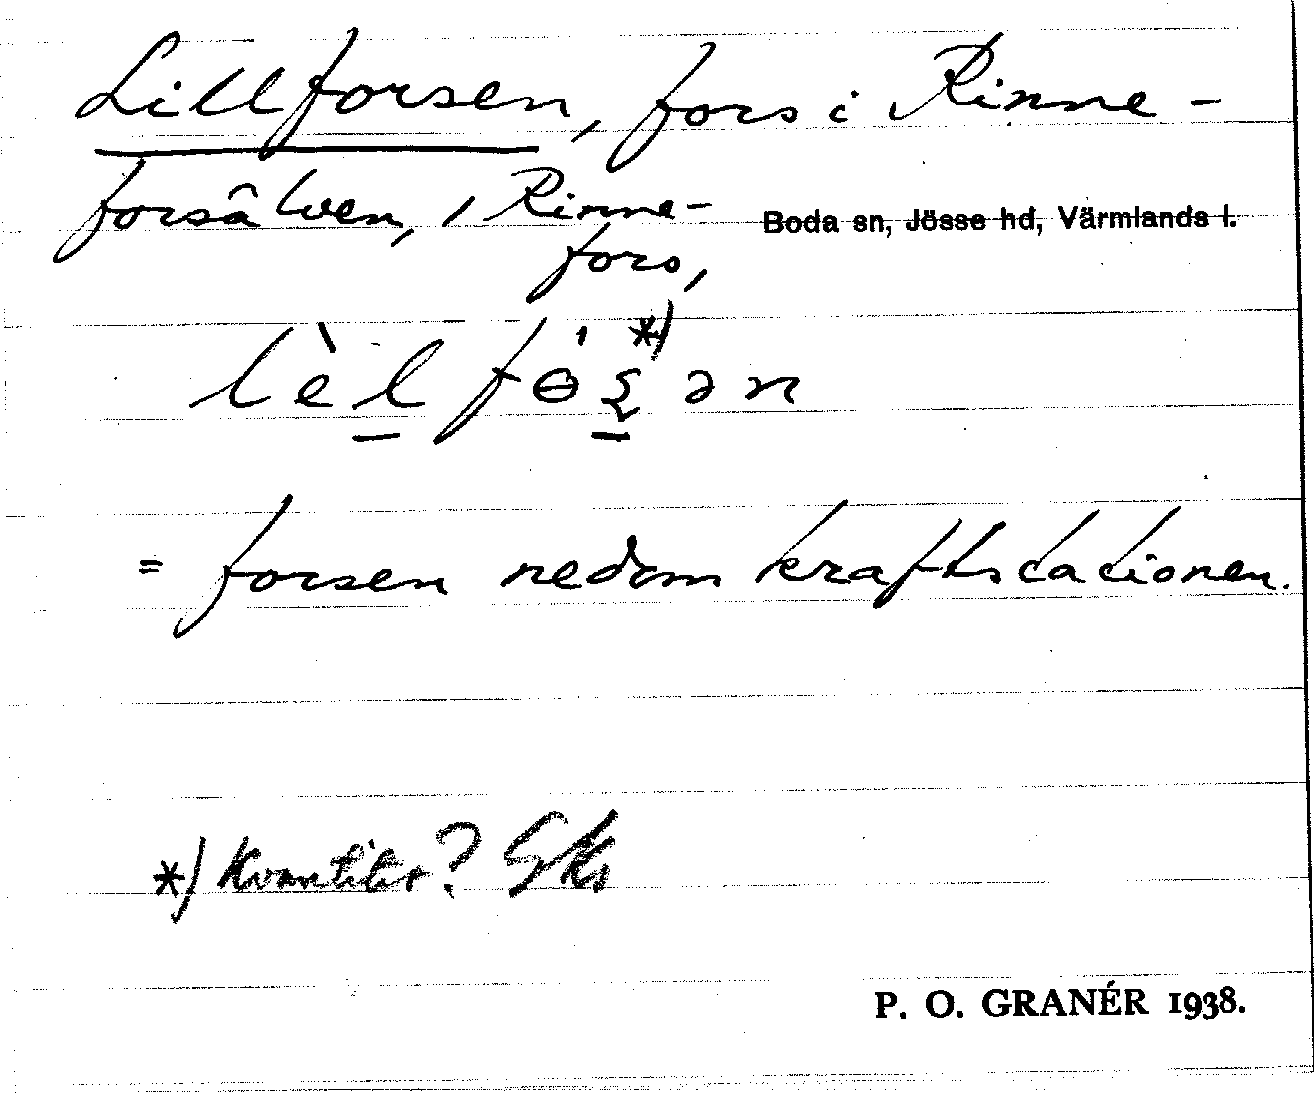 Lillforsen, fors i Rinne-
forsälven, i Rinne-
fors,
Boda sn, Jösse hd, Värmlands l.
lèl fɵ́ʂən *)
= forsen nedom kraftstationen.
*) Kvantitet?
P. O. GRANÉR 1938.